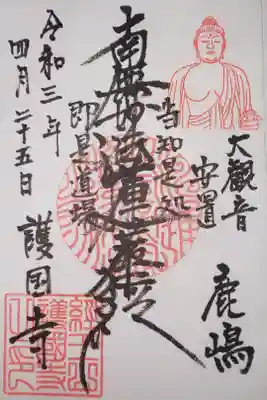 大観音
安置
鹿嶋
当知是処
南無妙法蓮華経
即是道場
令和三年
四月二十五日
護国寺